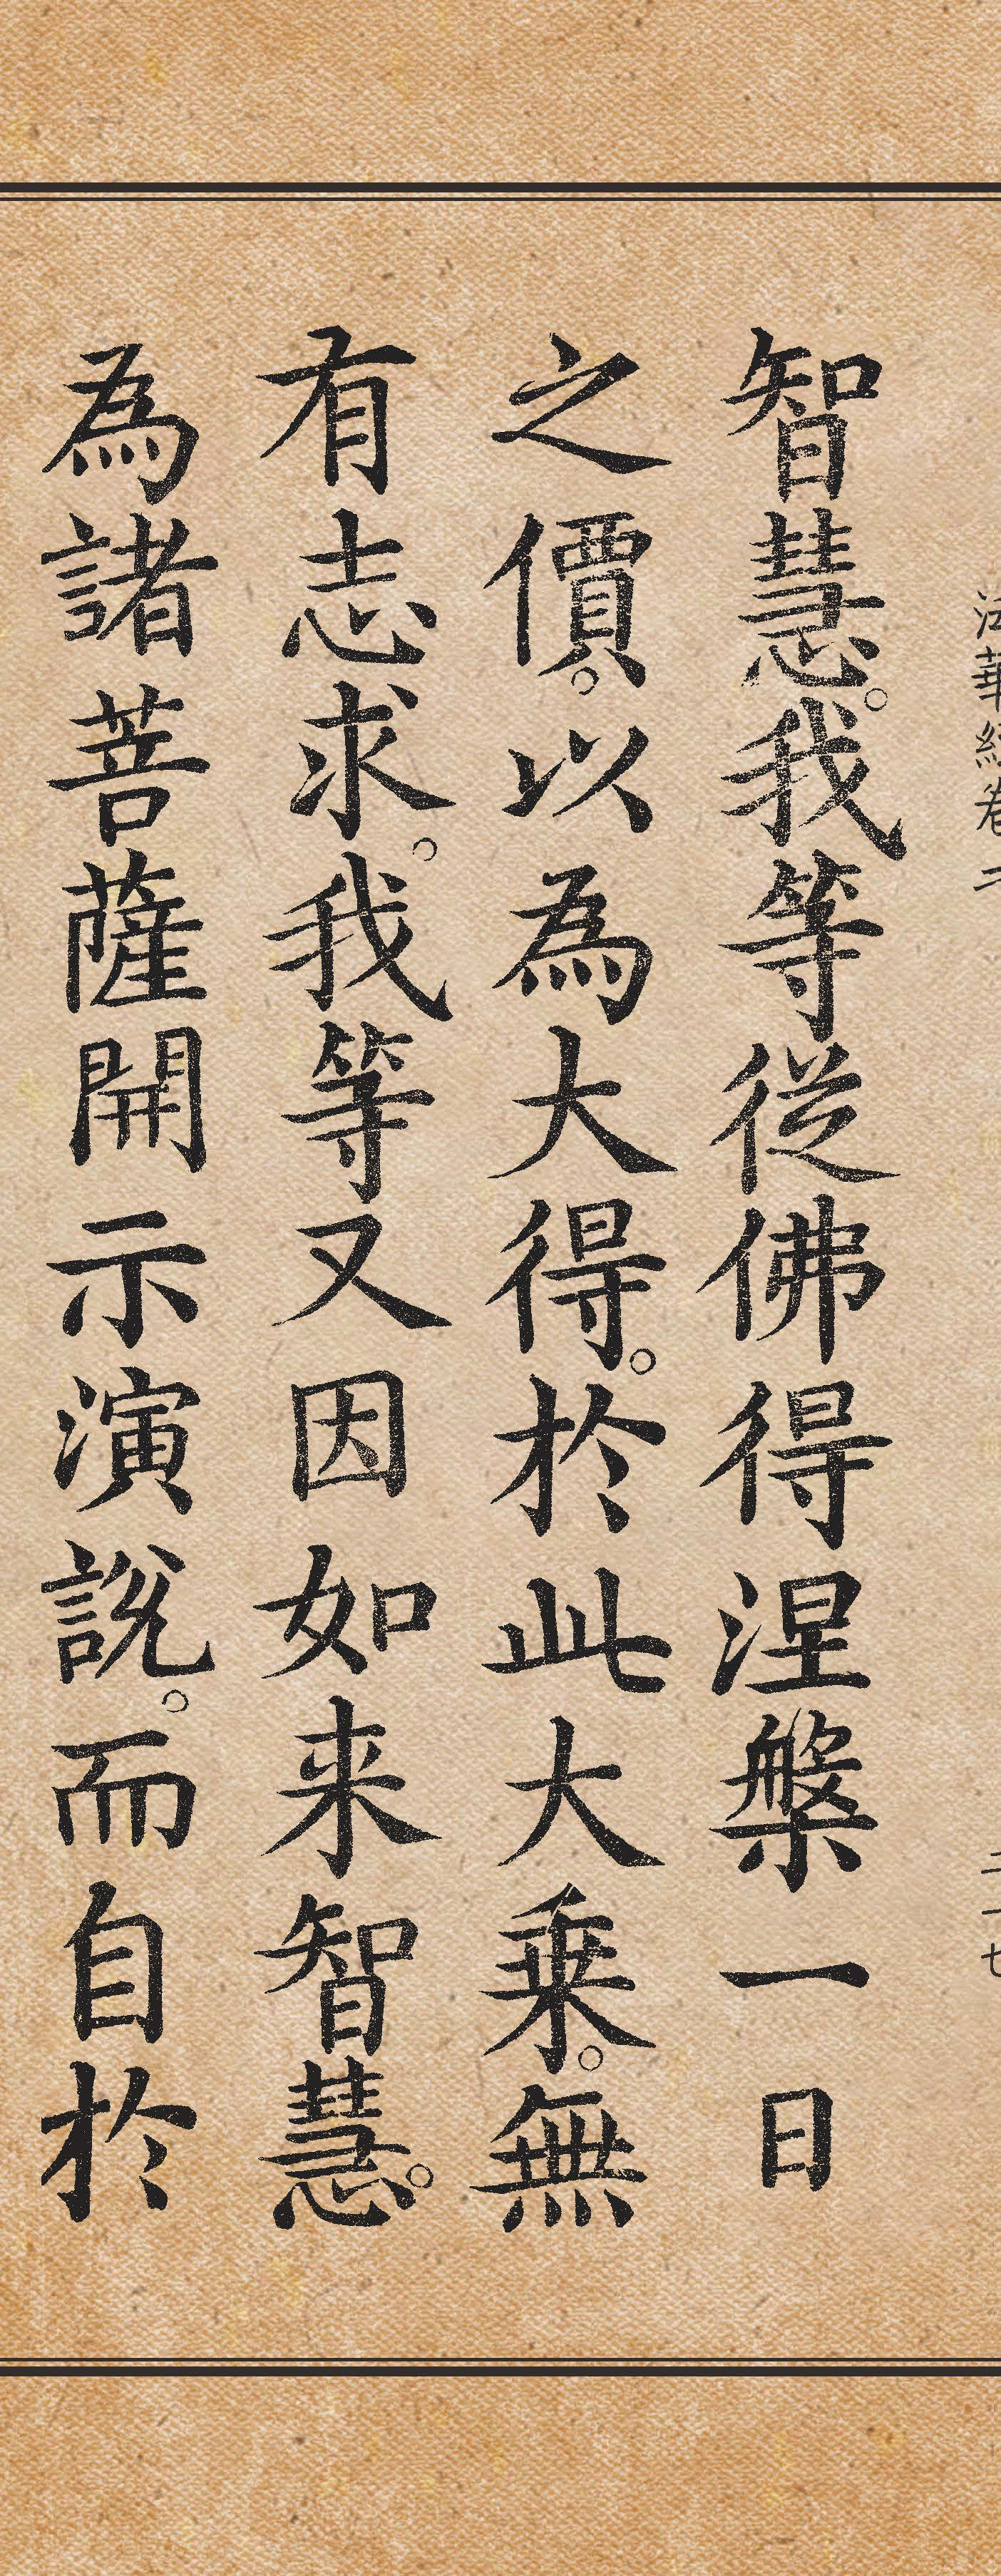 法華經卷二
二十七
智慧。我等從佛得涅槃一日
之價。以為大得。於此大乘。無
有志求。我等又因如来智慧。
為諸菩薩開示演說。而自於